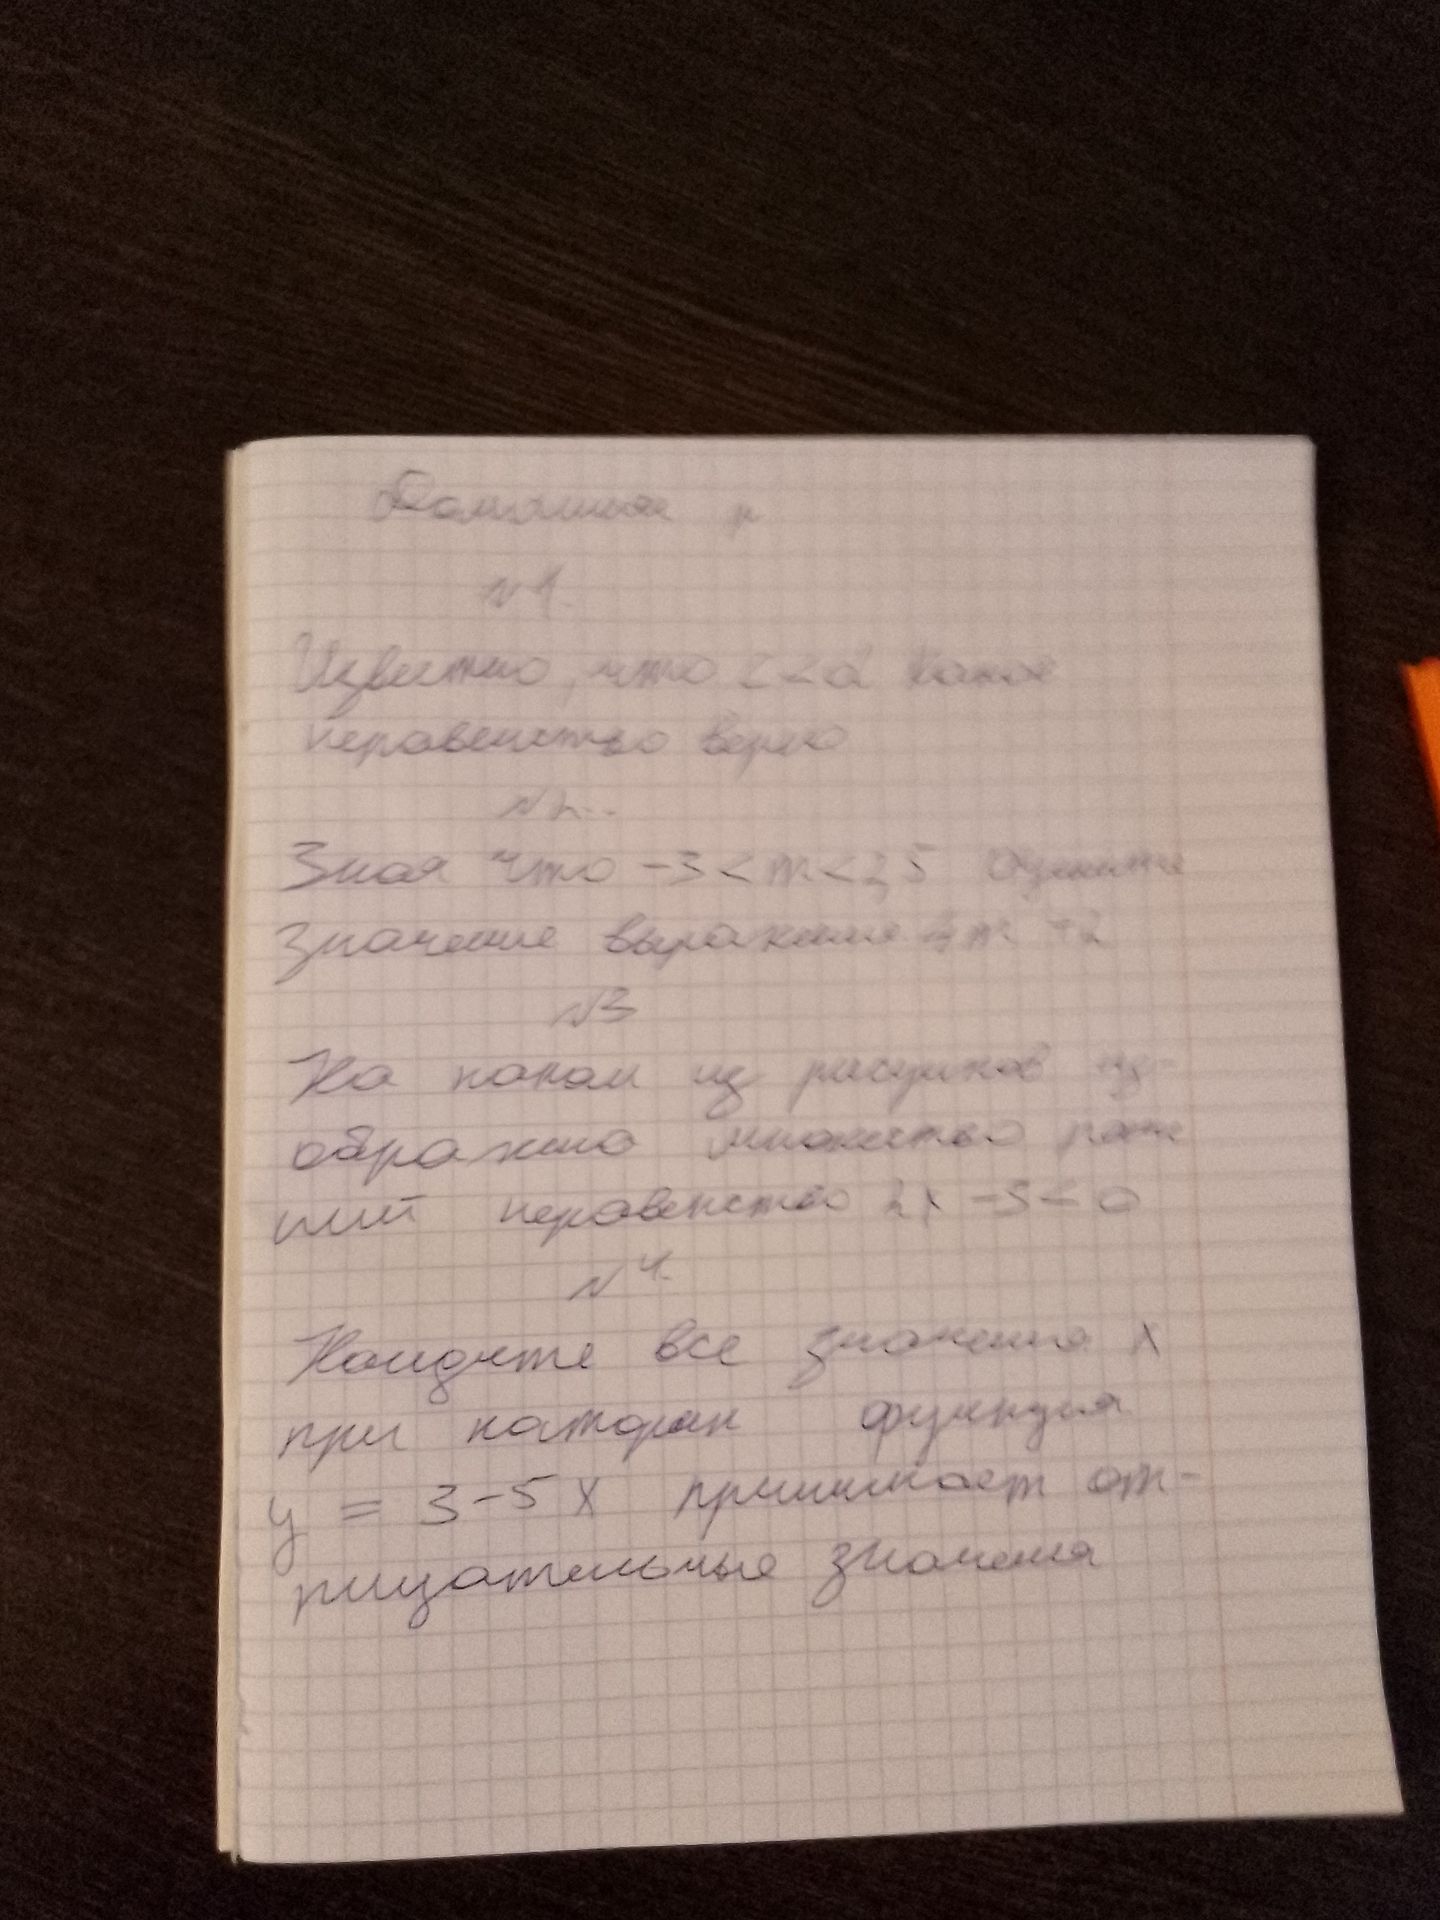 Домашняя р
№1.
Известно, что c<d Какое
неравенство верно
№2.
Зная что -3<m<2,5 Оцените
значение выражение 4m+2
№3
На каком из рисунков из-
ображено множество реше
ний неравенство 2x-5<0
№4.
Найдите все значение x
при котором функция
y = 3-5x принимает от-
рицательные значения